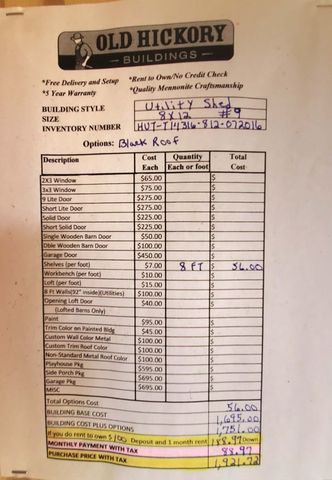 OLD HICKORY
BUILDINGS
*Free Delivery and Setup *Rent to Own/No Credit Check
*5 Year Warranty *Quality Mennonite Craftsmanship
BUILDING STYLE Utility Shed
SIZE 8x12 #9
INVENTORY NUMBER HUT-T14316-812-072016
Options: Black Roof
Description Cost Each Quantity Each or foot Total Cost
2X3 Window $65.00 $
3x3 Window $75.00 $
9 Lite Door $275.00 $
Short Lite Door $275.00 $
Solid Door $225.00 $
Short Solid Door $225.00 $
Single Wooden Barn Door $50.00 $
Dble Wooden Barn Door $100.00 $
Garage Door $450.00 $
Shelves (per foot) $7.00 8 FT $ 56.00
Workbench (per foot) $10.00 $
Loft (per foot) $15.00 $
8 Ft Walls(92" inside)(Utilities) $100.00 $
Opening Loft Door $40.00 $
(Lofted Barns Only)
Paint $95.00 $
Trim Color on Painted Bldg $45.00 $
Custom Wall Color Metal $100.00 $
Custom Trim Roof Color $100.00 $
Non-Standard Metal Roof Color $100.00 $
Playhouse Pkg $595.00 $
Side Porch Pkg $695.00 $
Garage Pkg $695.00 $
MISC $
Total Options Cost 56.00
BUILDING BASE COST 1,695.00
BUILDING COST PLUS OPTIONS 1,751.00
If you do rent to own $100 Deposit and 1 month rent 188.97 Down
MONTHLY PAYMENT WITH TAX 88.97
PURCHASE PRICE WITH TAX 1,921.72